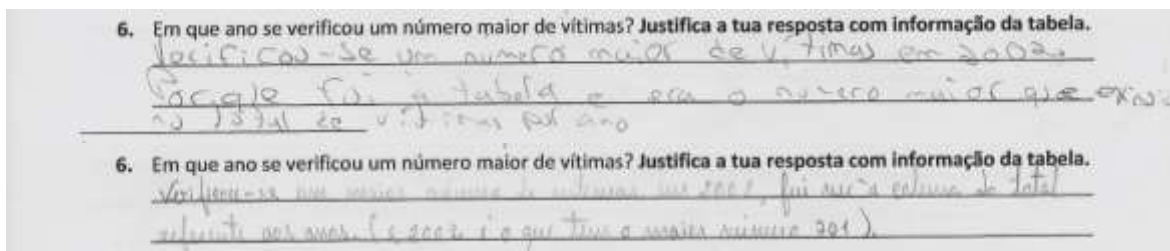 6. Em que ano se verificou um número maior de vítimas? Justifica a tua resposta com informação da tabela.
Verificou-se um numero maior de vitimas em 2002.
Porque fui á tabela e era o numero maior que
no total de vitimas por ano
6. Em que ano se verificou um número maior de vítimas? Justifica a tua resposta com informação da tabela.
Verificou-se um maior número de vitimas em 2002, fui ver a coluna do total
referente aos anos. (e 2002 é o que tem o maior número 201).